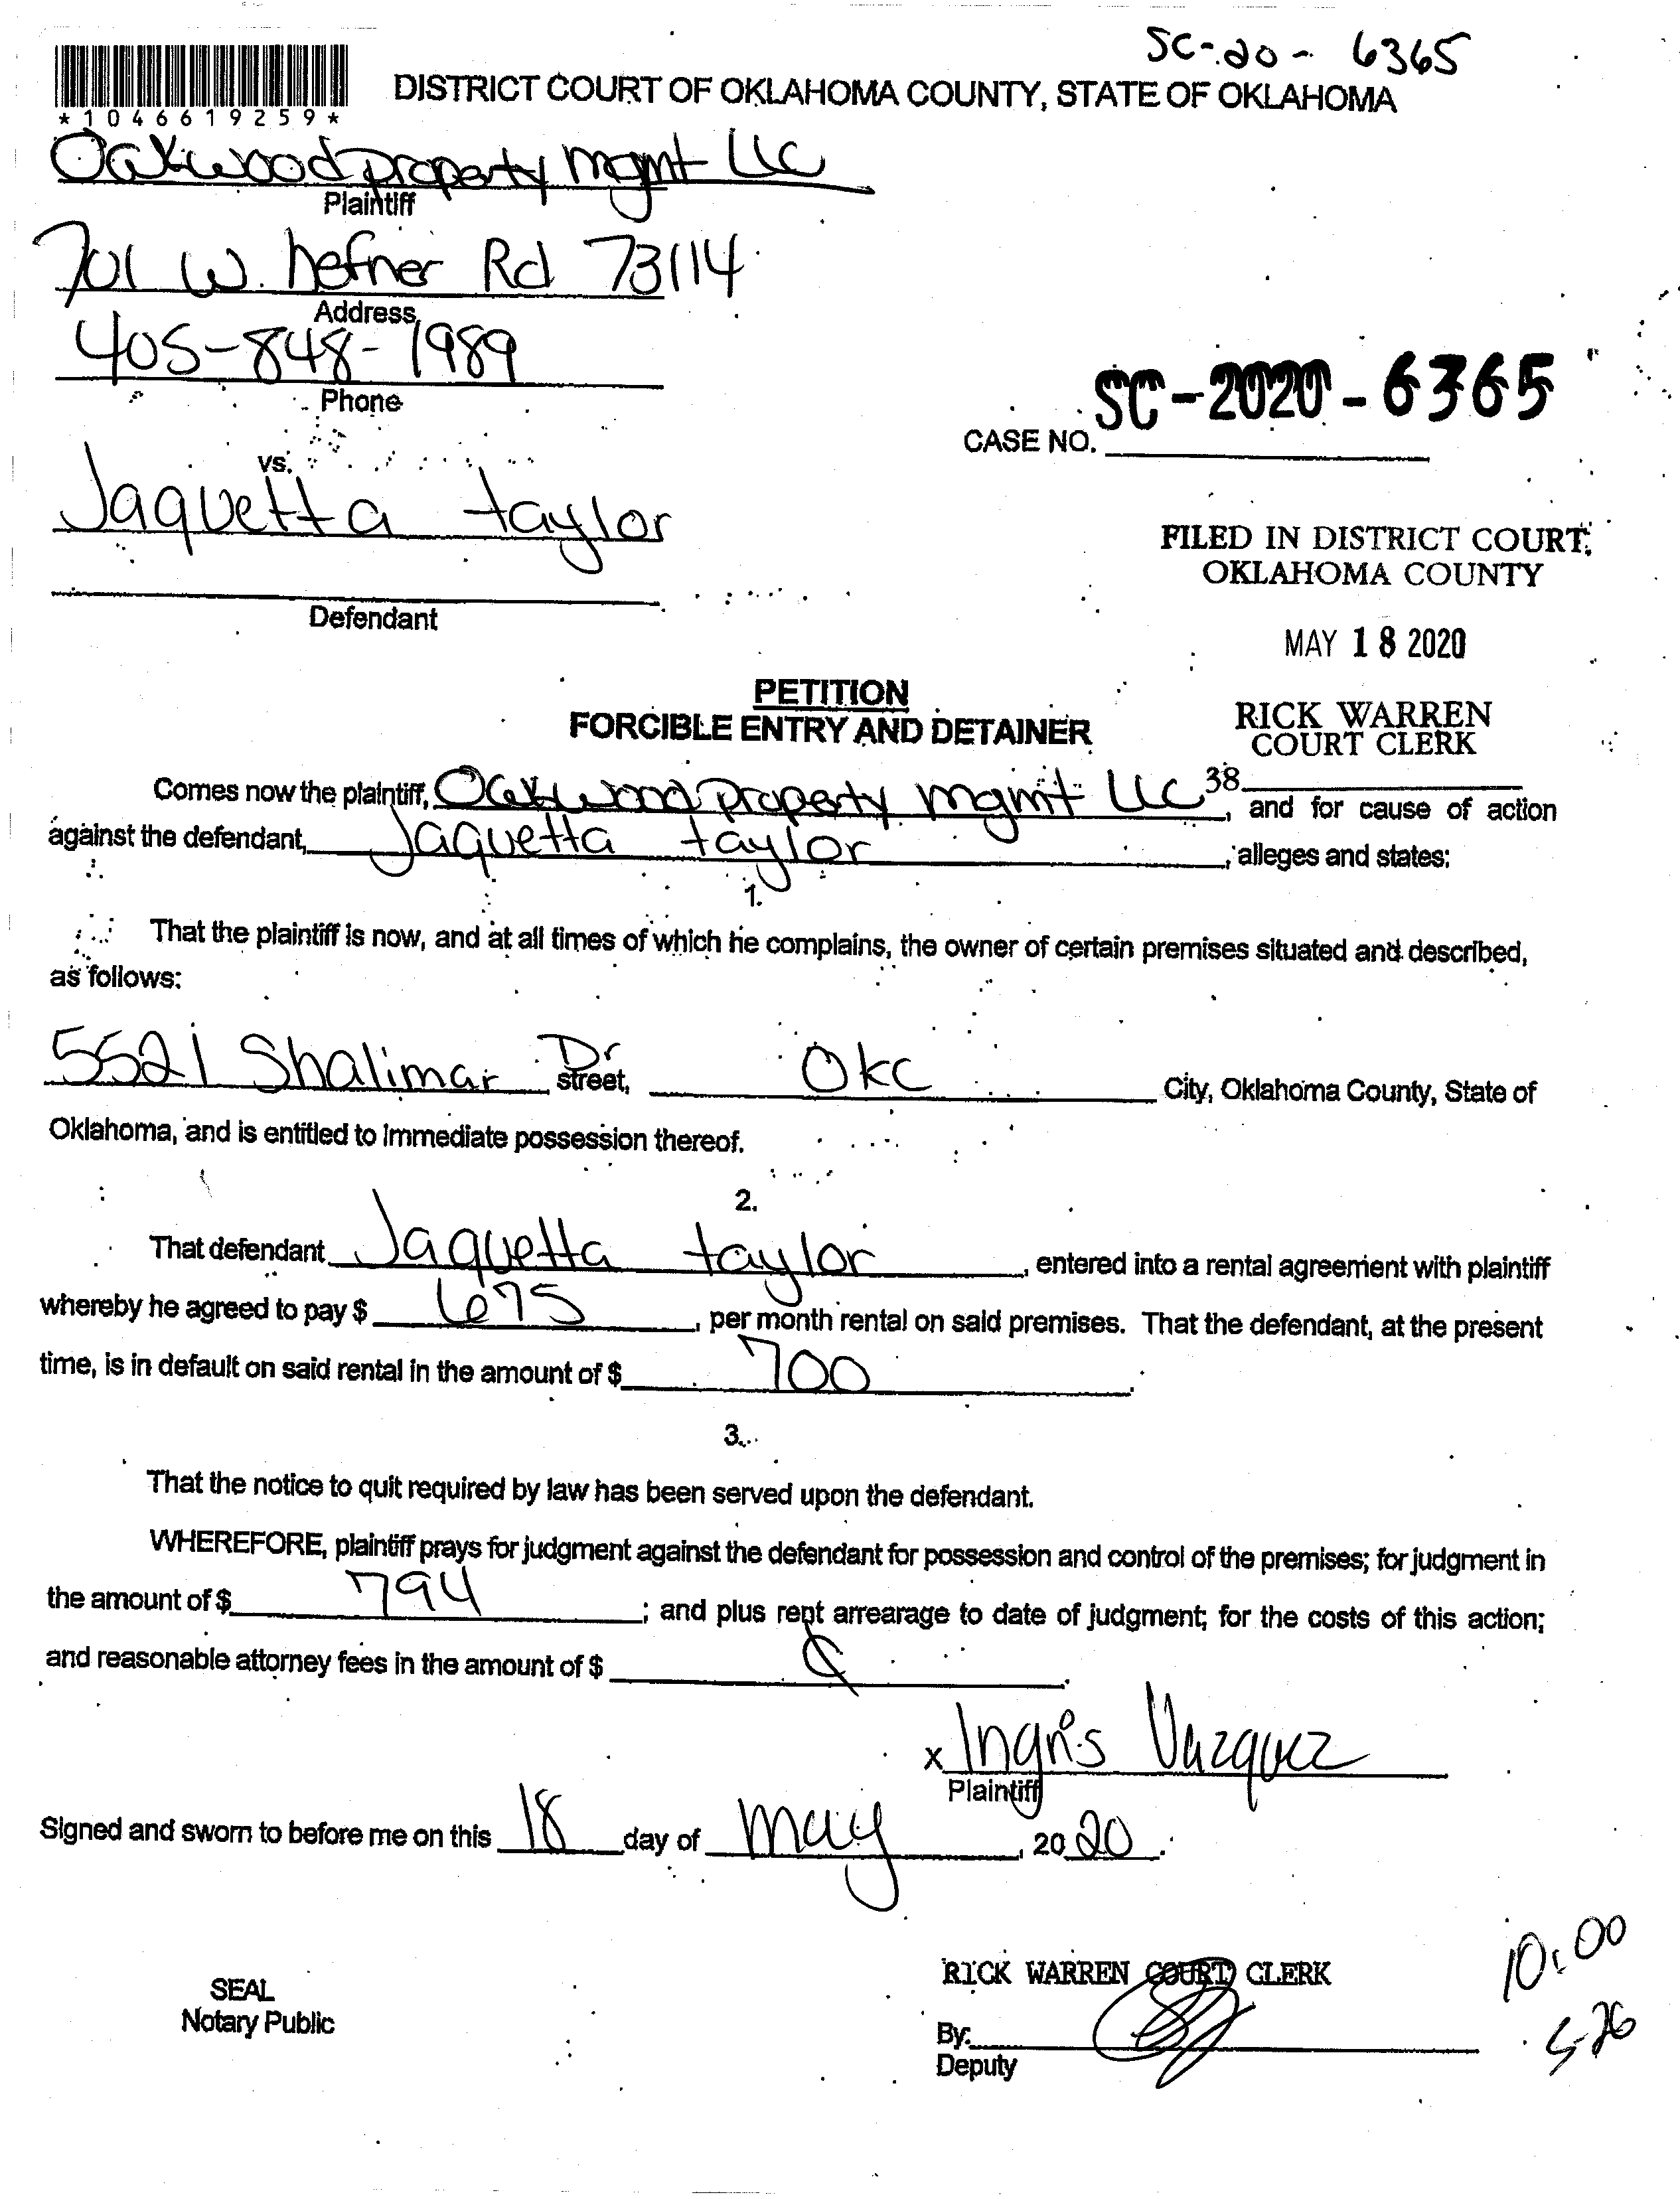 SC-20- 6365
*1046619259*
DISTRICT COURT OF OKLAHOMA COUNTY, STATE OF OKLAHOMA
Oakwood property mgmt LLC
Plaintiff
701 W. hefner Rd 73114
Address
405-848-1989
Phone
SC-2020-6365
CASE NO.
vs.
Jaquetta taylor
Defendant
FILED IN DISTRICT COURT
OKLAHOMA COUNTY
MAY 18 2020
RICK WARREN
COURT CLERK
38
PETITION
FORCIBLE ENTRY AND DETAINER
Comes now the plaintiff, Oakwood property mgmt LLC, and for cause of action
against the defendant, Jaquetta taylor, alleges and states:
1.
That the plaintiff is now, and at all times of which he complains, the owner of certain premises situated and described,
as follows:
5521 Shalimar Dr street, Okc City, Oklahoma County, State of
Oklahoma, and is entitled to immediate possession thereof.
2.
That defendant Jaquetta taylor, entered into a rental agreement with plaintiff
whereby he agreed to pay $ 675, per month rental on said premises. That the defendant, at the present
time, is in default on said rental in the amount of $ 700.
3.
That the notice to quit required by law has been served upon the defendant.
WHEREFORE, plaintiff prays for judgment against the defendant for possession and control of the premises; for judgment in
the amount of $ 794; and plus rent arrearage to date of judgment; for the costs of this action;
and reasonable attorney fees in the amount of $
x Ingris Vazquez
Plaintiff
Signed and sworn to before me on this 18 day of May, 2020.
SEAL
Notary Public
RICK WARREN COURT CLERK
By:
Deputy
10:00
5-26